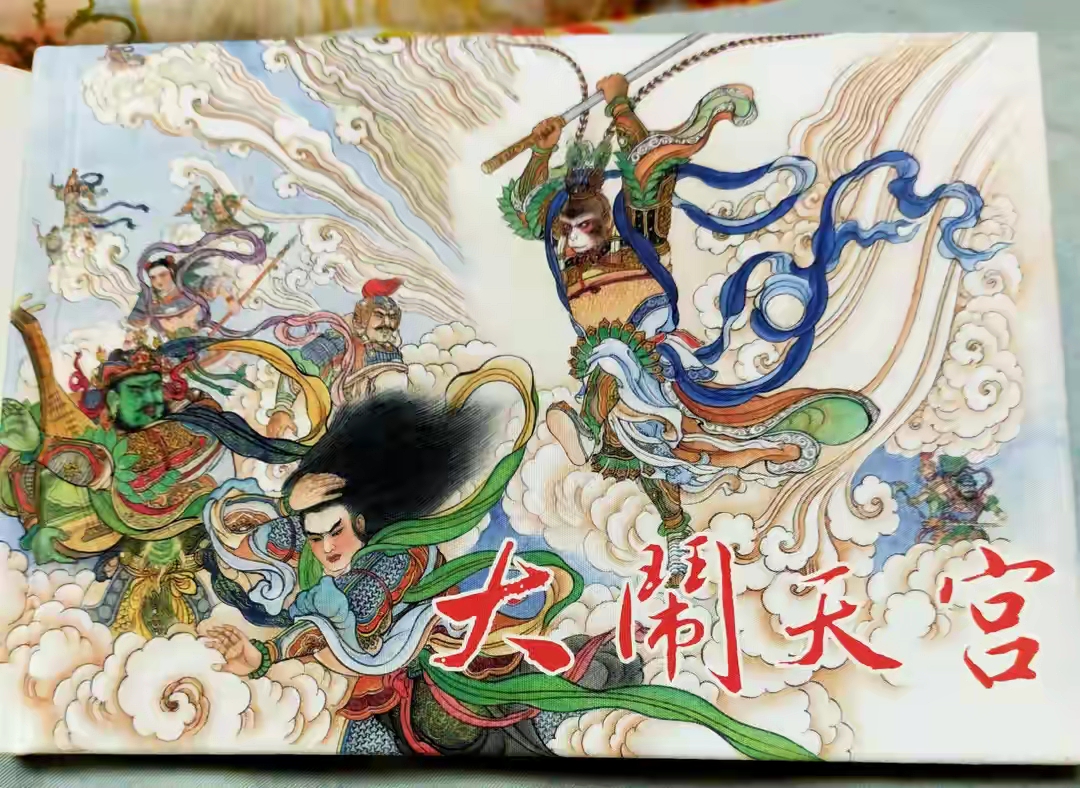 大鬧天宫